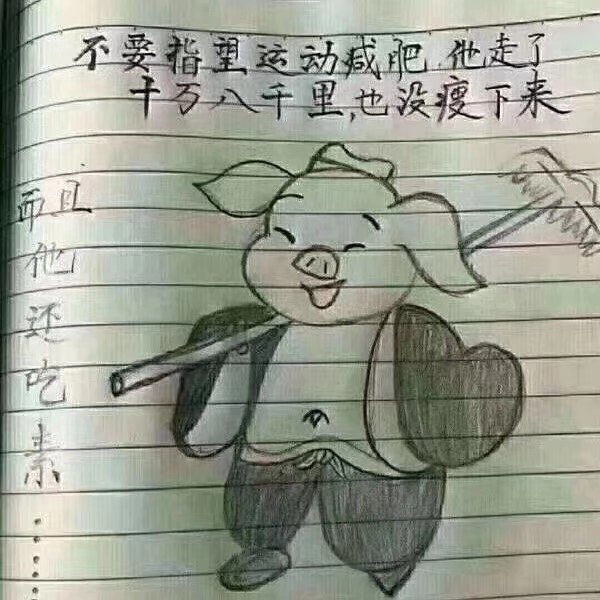 不要指望运动减肥 他走了
十万八千里,也没瘦下来
而且他还吃素......